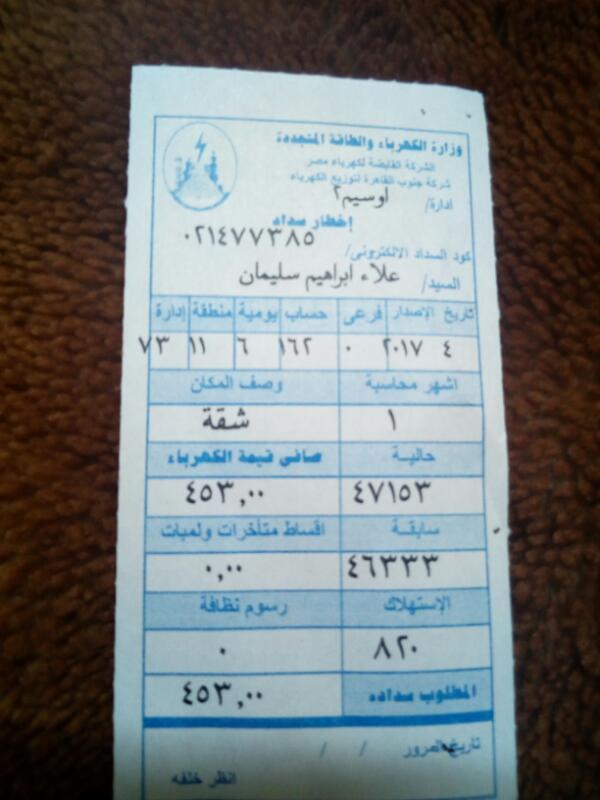 وزارة الكهرباء والطاقة المتجددة
الشركة القابضة لكهرباء مصر
شركة جنوب القاهرة لتوزيع الكهرباء
ادارة/ اوسيم٢
إخطار سداد
كود السداد الالكترونى/ ٠٢١٤٧٧٣٨٥
السيد/ علاء ابراهيم سليمان
تاريخ الإصدار فرعى حساب يومية منطقة إدارة
٤ ٢٠١٧ ٠ ١٦٢ ٦ ١١ ٧٣
اشهر محاسبة وصف المكان
١ شقة
حاليــة صافى قيمة الكهرباء
٤٧١٥٣ ٤٥٣,٠٠
سابقــة اقساط متأخرات ولمبات
٤٦٣٣٣ ٠,٠٠
الإستهلاك رسوم نظافة
٨٢٠ ٠
المطلوب سداده ٤٥٣,٠٠
تاريخ المرور / /
انظر خلفه